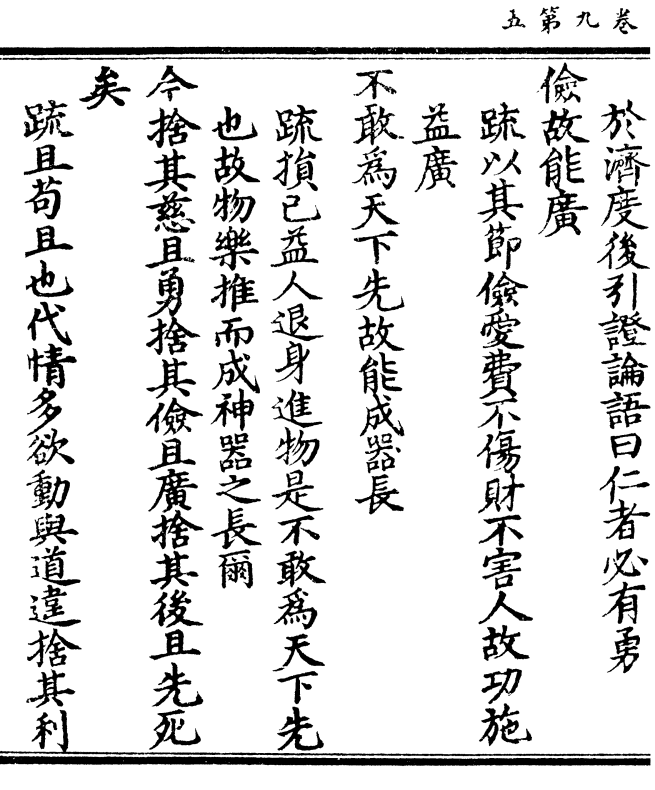 卷九第五
於濟度後引證論語曰仁者必有勇
儉故能廣
疏以其節儉愛費不傷財不害人故功施
益廣
不敢為天下先故能成器長
疏損己益人退身進物是不敢為天下先
也故物樂推而成神器之長爾
今捨其慈且勇捨其儉且廣捨其後且先死
矣
疏且苟且也代情多欲動與道違捨其利